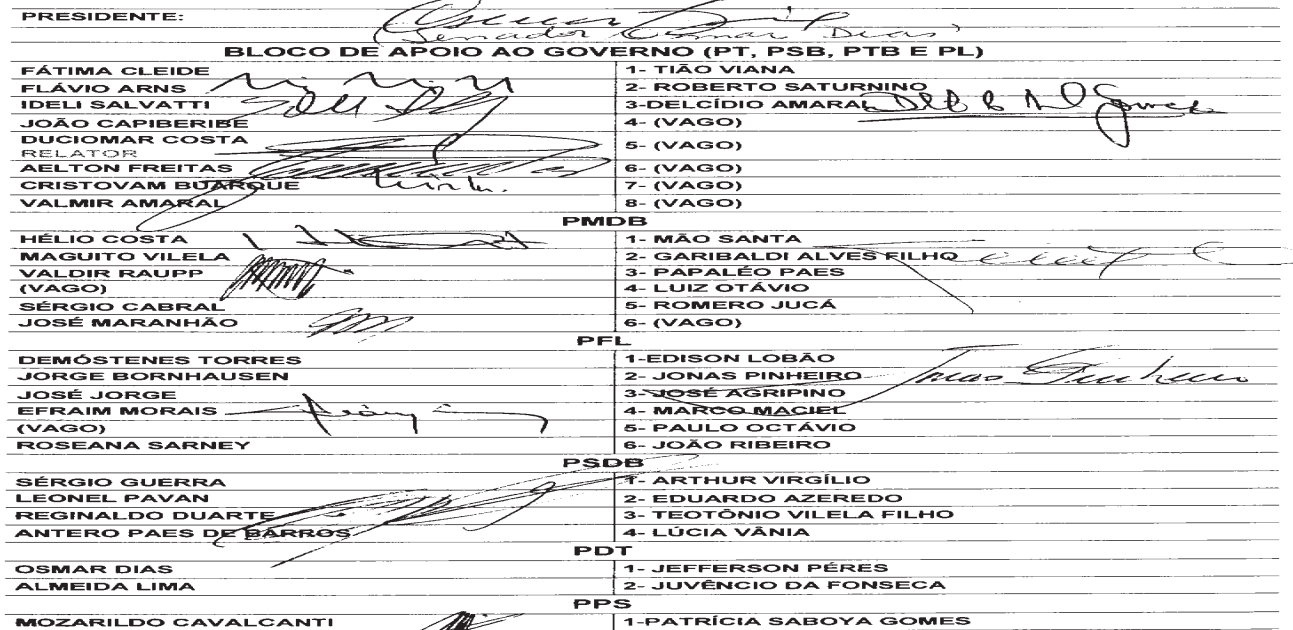 PRESIDENTE:
Senador Osmar Dias
BLOCO DE APOIO AO GOVERNO (PT, PSB, PTB E PL)
FÁTIMA CLEIDE 1- TIÃO VIANA
FLÁVIO ARNS 2- ROBERTO SATURNINO
IDELI SALVATTI 3-DELCÍDIO AMARAL
JOÃO CAPIBERIBE 4- (VAGO)
DUCIOMAR COSTA 5- (VAGO)
RELATOR
AELTON FREITAS 6- (VAGO)
CRISTOVAM BUARQUE 7- (VAGO)
VALMIR AMARAL 8- (VAGO)
PMDB
HÉLIO COSTA 1- MÃO SANTA
MAGUITO VILELA 2- GARIBALDI ALVES FILHO
VALDIR RAUPP 3- PAPALÉO PAES
(VAGO) 4- LUIZ OTÁVIO
SÉRGIO CABRAL 5- ROMERO JUCÁ
JOSÉ MARANHÃO 6- (VAGO)
PFL
DEMÓSTENES TORRES 1-EDISON LOBÃO
JORGE BORNHAUSEN 2- JONAS PINHEIRO Jonas Pinheiro
JOSÉ JORGE 3- JOSÉ AGRIPINO
EFRAIM MORAIS 4- MARCO MACIEL
(VAGO) 5- PAULO OCTÁVIO
ROSEANA SARNEY 6- JOÃO RIBEIRO
PSDB
SÉRGIO GUERRA 1- ARTHUR VIRGÍLIO
LEONEL PAVAN 2- EDUARDO AZEREDO
REGINALDO DUARTE 3- TEOTÔNIO VILELA FILHO
ANTERO PAES DE BARROS 4- LÚCIA VÂNIA
PDT
OSMAR DIAS 1- JEFFERSON PÉRES
ALMEIDA LIMA 2- JUVÊNCIO DA FONSECA
PPS
MOZARILDO CAVALCANTI 1-PATRÍCIA SABOYA GOMES